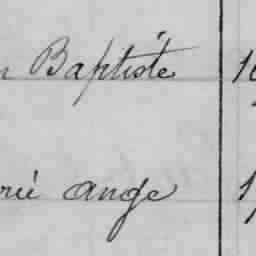 n Baptiste 1
rie ange 1